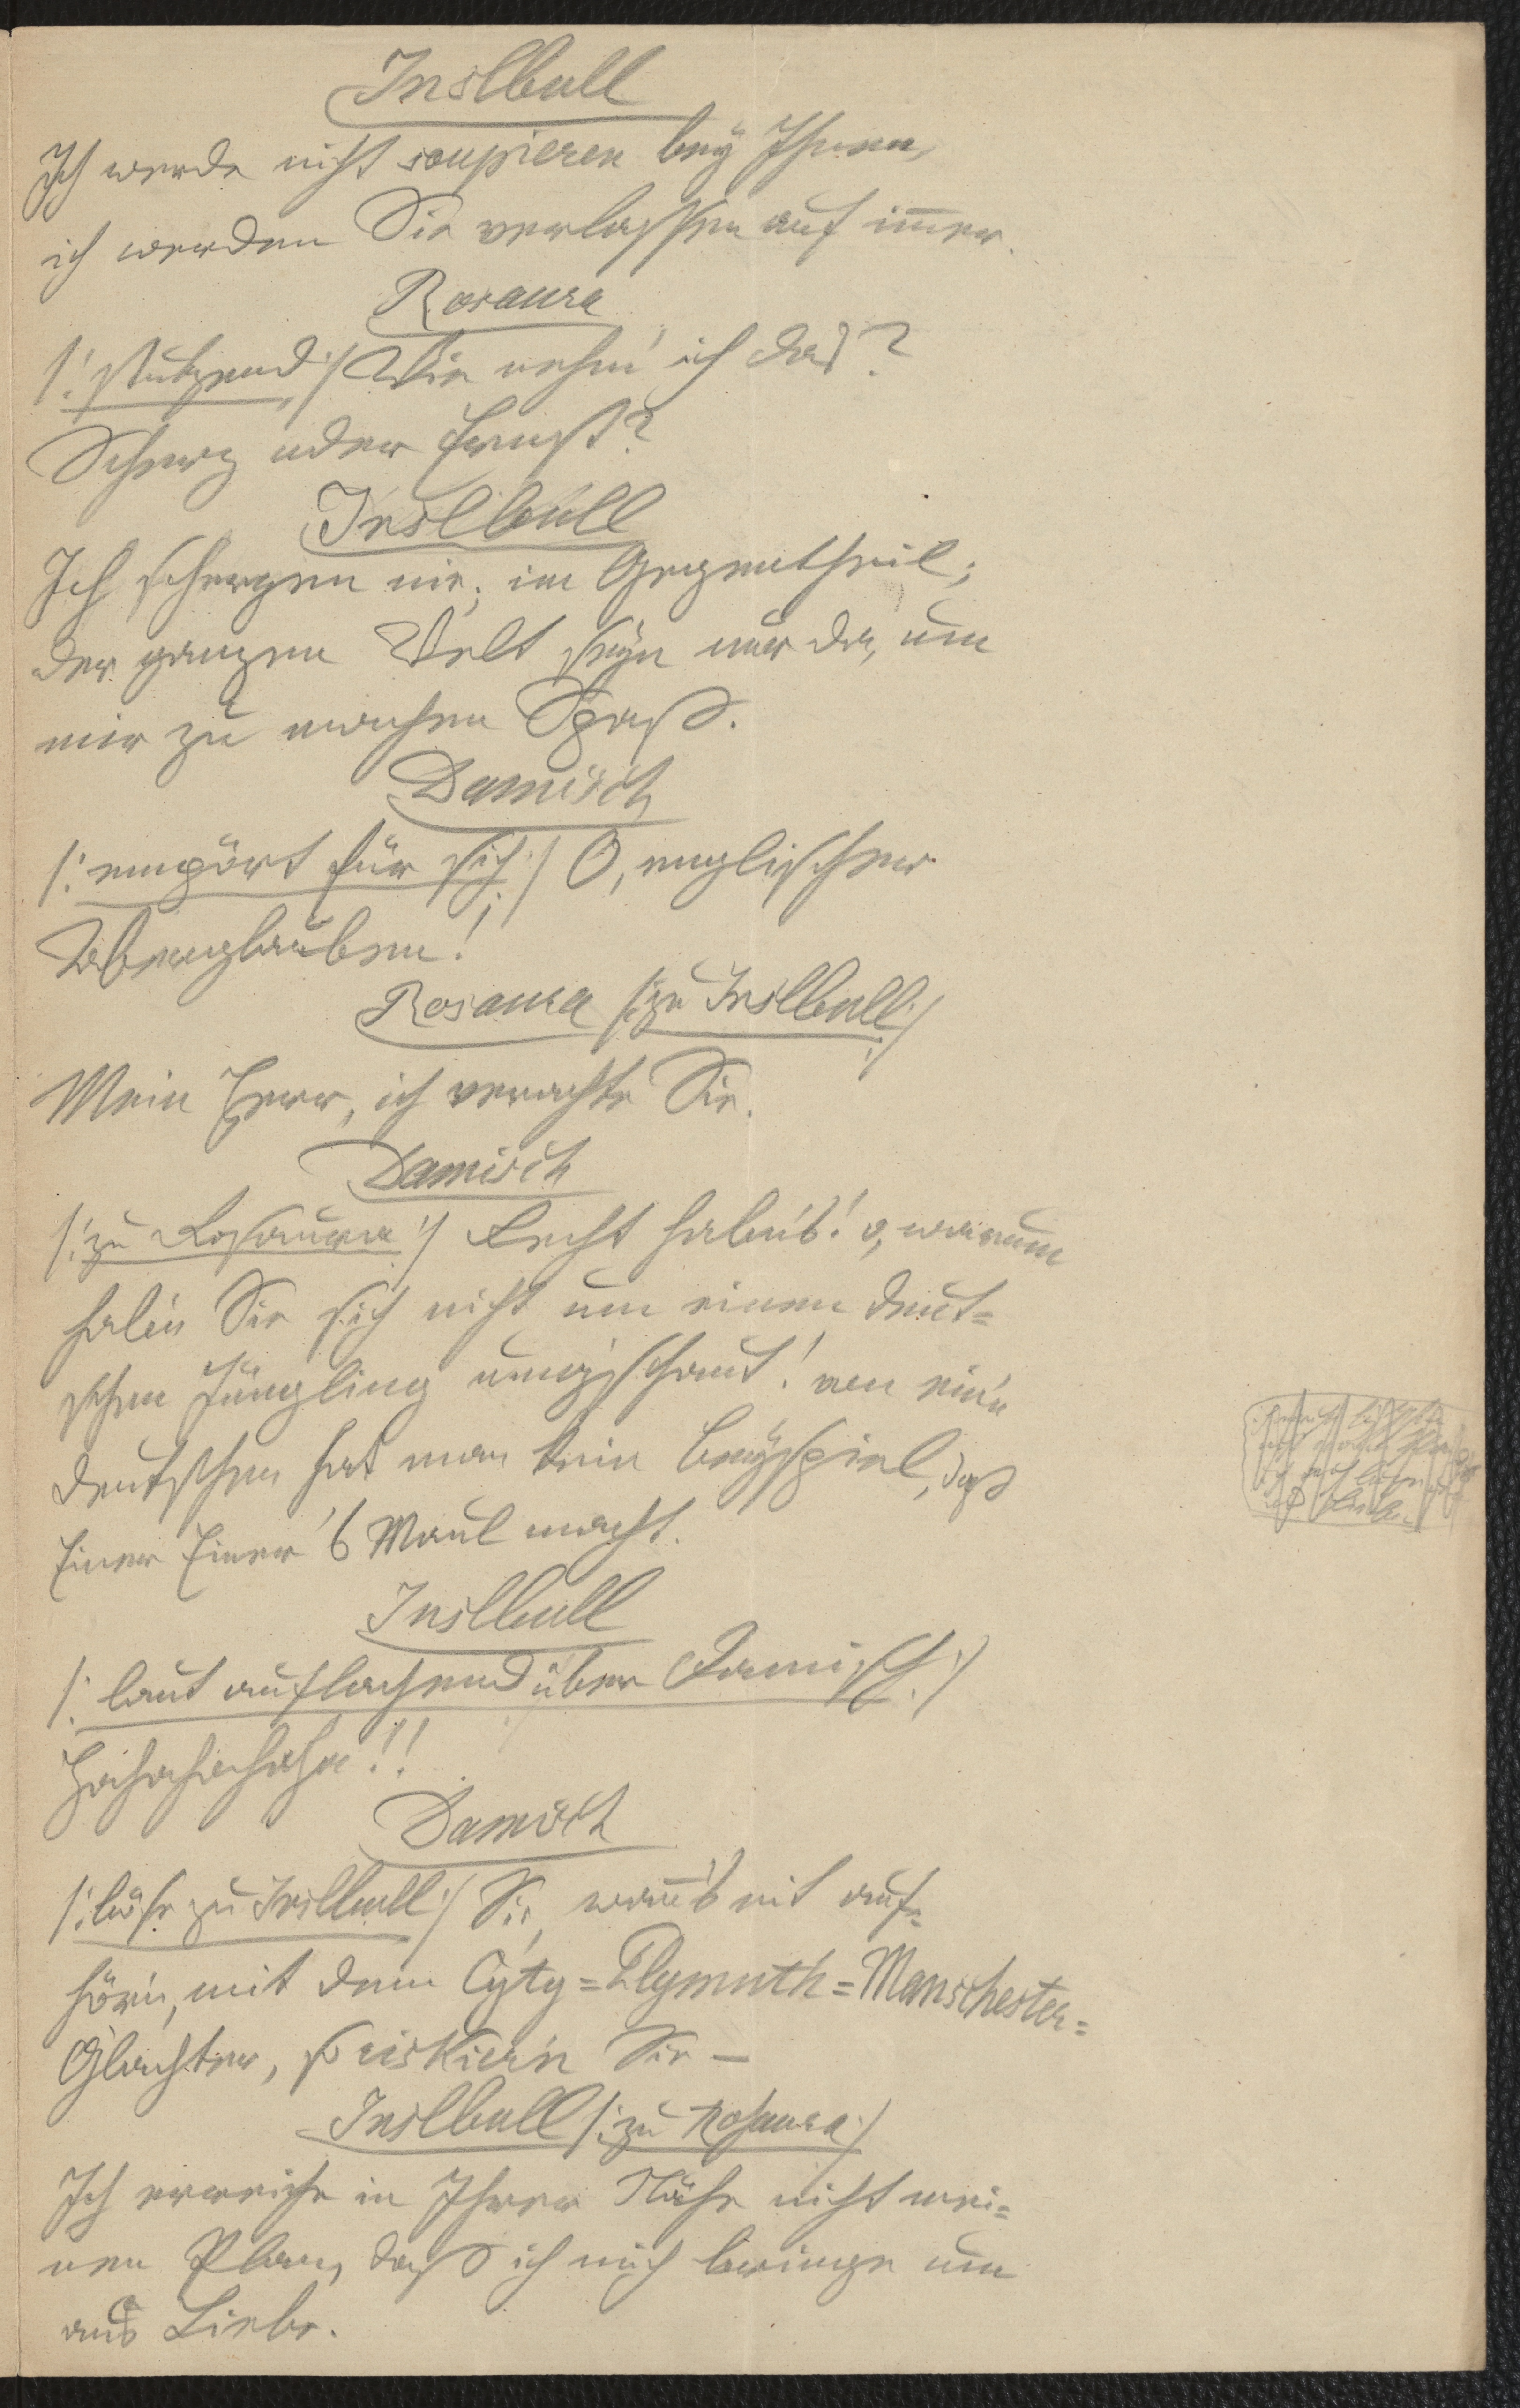 Inslbull
Ich werde nicht soupieren bey Ihnen,
ich werden Sie verlassen auf im̅er.
Rosaura
/: stutzend :/ Wie nehm' ich das?
Scherz oder Ernst?
Inslbull
Ich scherzen nie; im Gegentheil;
der ganzen Welt seyn nur da, um
mir zu machen Spaß.
Damisch
/: empört für sich :/ O, englischer
Aberglauben!
Rosaura /: zu Inslbull :/
Mein Herr, ich verachte Sie.
Damisch
/: zu Rosaura :/ Recht hab'n's! o, warum
hab'n Sie sich nicht um einen deut=
schen Jüngling umg'schaut! von ein'n
deutschen hat man kein Beyspiel, daß
Einer Einer 's Maul macht.
Inslbull
/: laut auflachend über Damisch :/
Hahahahaha!!
Damisch
/: böse zu Inslbull :/ Sie, wan̅'s nit auf=
hör'n, mit dem Cyty=Plymuth=Manschester=
Glachter, so riskier'n Sie —
Inslbull /: zu Rosaura :/
Ich erreiche in Ihrer Nähe nicht mei=
nen Plan, daß ich mich bringe um
aus Liebe.